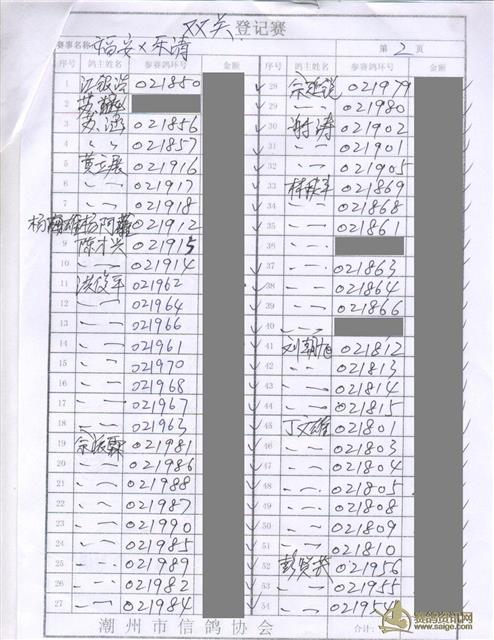 双关登记赛
赛事名称 福安×乐清 第 2 页
序号 鸽主姓名 参赛鸽环号 金额 序号 鸽主姓名 参赛鸽环号 金额
1 江银浩 021850
2
3 苏涵 021856
4 〃 021857
5 黄立展 021916
6 〃 021917
7 〃 021918
8 021912
9 陈才兴 021915
10 〃 021914
11 洪俊平 021962
12 〃 021964
13 〃 021966
14 〃 021961
15 〃 021970
16 〃 021968
17 〃 021967
18 〃 021963
19 佘派霖 021981
20 〃 021986
21 〃 021988
22 〃 021987
23 〃 021990
24 〃 021985
25 〃 021989
26 〃 021982
27 〃 021984
28 021979
29 〃 021980
30 谢涛 021902
31 〃 021901
32 〃 021905
33 021869
34 〃 021868
35 〃 021861
36 〃
37 〃 021863
38 〃 021864
39 〃 021866
40 〃
41 刘朝旭 021812
42 〃 021813
43 〃 021814
44 〃 021815
45 丁文雄 021801
46 〃 021803
47 〃 021804
48 〃 021805
49 〃 021808
50 〃 021809
51 〃 021810
52 彭贤茂 021956
53 〃 021955
54 〃 021954
潮州市信鸽协会 合计:
赛鸽资讯网
www.saige.com